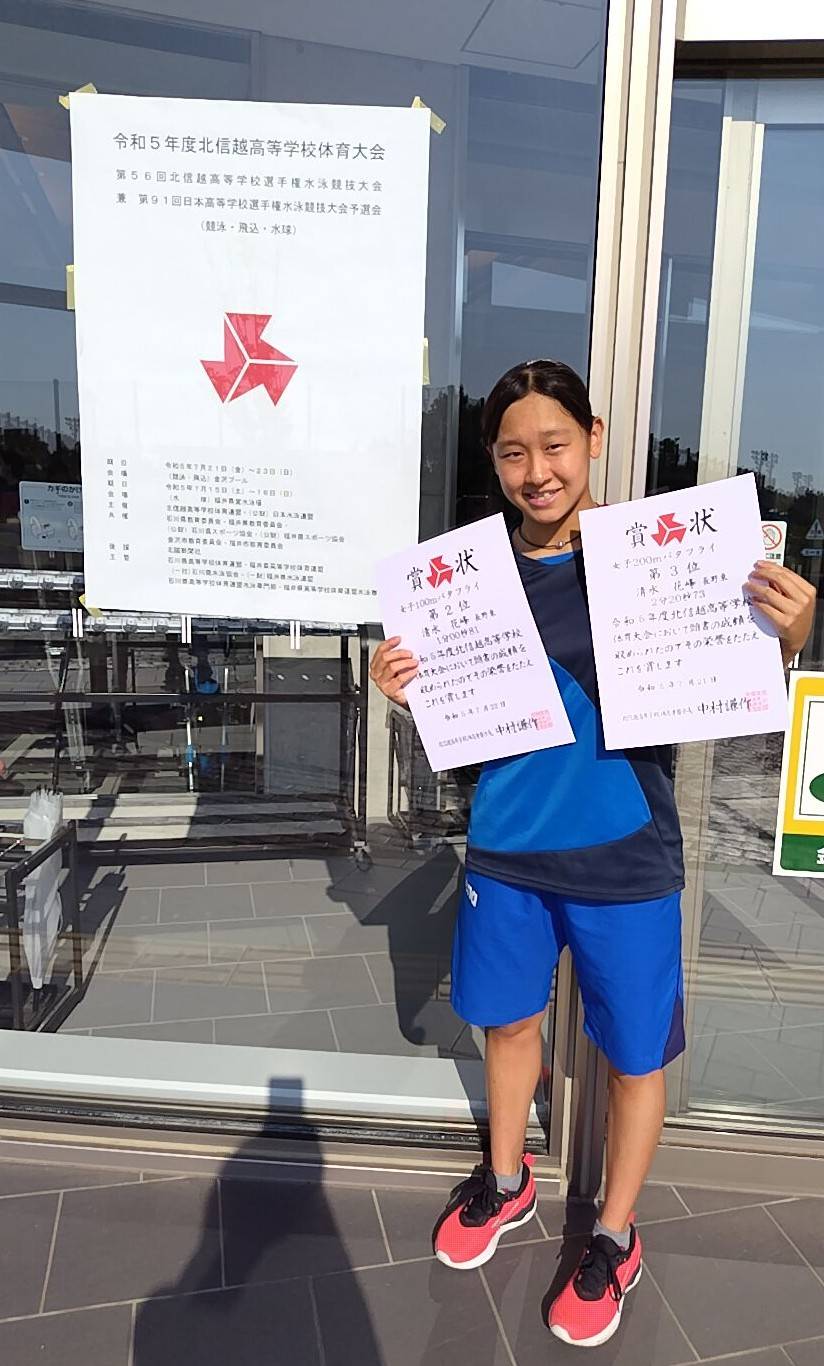 令和５年度北信越高等学校体育大会
第５６回北信越高等学校選手権水泳競技大会
兼 第９１回日本高等学校選手権水泳競技大会予選会
(競泳・飛込・水球)
期日 令和５年７月２１日(金)～２３日(日)
会場 (競泳・飛込)金沢プール
期日 令和５年７月１５日(土)～１６日(日)
会場 (水 球)福井県営水泳場
主催 北信越高等学校体育連盟・(公財)日本水泳連盟
共催 石川県教育委員会・福井県教育委員会・
(公財)石川県スポーツ協会・(公財)福井県スポーツ協会
金沢市教育委員会・福井市教育委員会
後援 北國新聞社
主管 石川県高等学校体育連盟・福井県高等学校体育連盟
(一社)石川県水泳協会・(一財)福井県水泳連盟
石川県高等学校体育連盟水泳専門部・福井県高等学校体育連盟水泳専
賞状
女子100mバタフライ
第２位
清水 花峰 長野東
1分00秒81
令和５年度北信越高等学校
体育大会において頭書の成績を
収められたのでその栄誉をたたえ
これを賞します
令和５年７月22日
北信越高等学校体育連盟会長 中村謙作
賞状
女子200mバタフライ
第３位
清水 花峰 長野東
2分20秒73
令和５年度北信越高等学校
体育大会において頭書の成績を
収められたのでその栄誉をたたえ
これを賞します
令和５年７月21日
北信越高等学校体育連盟会長 中村謙作
カギのかけ